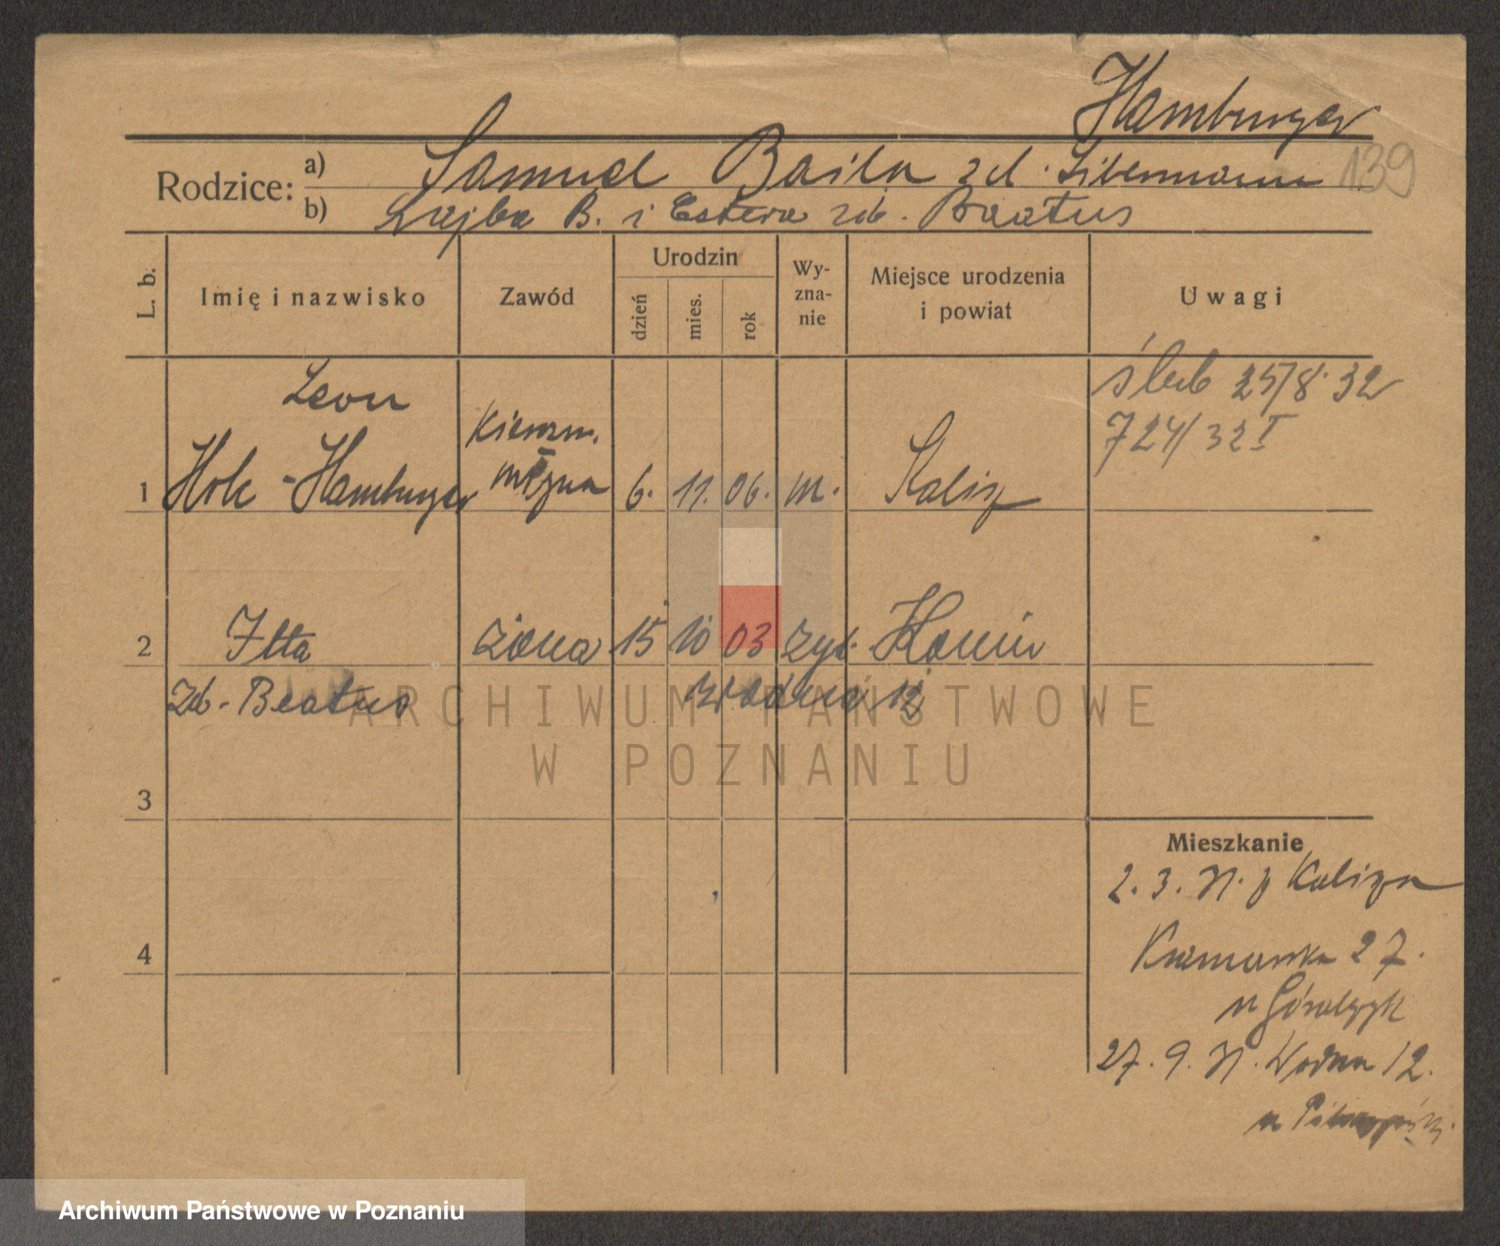 Hamburger
Rodzice:
a) Samuel Baila zd. Libermann 139
b) Lajba B. i Estera zd. Baatus
L. b.
Imię i nazwisko
Zawód
Urodzin
dzień
mies.
rok
Wy-
zna-
nie
Miejsce urodzenia
i powiat
Uwagi
Leon
1 Hok-Hamburger
6. 11. 06. m. Kalisz
ślub 25/8. 32
724/32 I
2 Itta żona 15 10 03 zyd. Konin
zd. Beatus
Wodna 12
3
4
Mieszkanie
2. 3. 31. z Kalisza
27.
27. 9. 31. Wodna 12.
ARCHIWUM PAŃSTWOWE
W POZNANIU
Archiwum Państwowe w Poznaniu